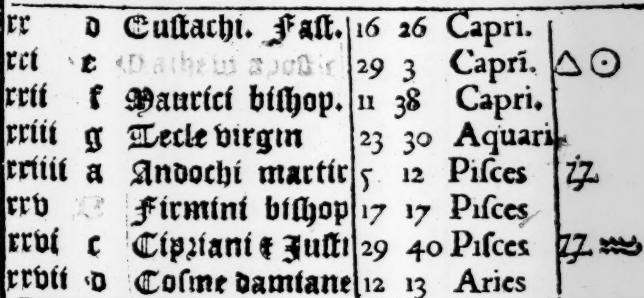 xx d Eustachi. Fast. 16 26 Capri.
xxi e Mathewi apostle 29 3 Capri. △ ☉
xxii f Maurici bishop. 11 38 Capri.
xxiii g Tecle virgin 23 30 Aquari
xxiiii a Andochi martir 5 12 Pisces
xxv Firmini bishop 17 17 Pisces
xxvi c Cipriani & Justi 29 40 Pisces ♒
xxvii d Cosme damiane 12 13 Aries